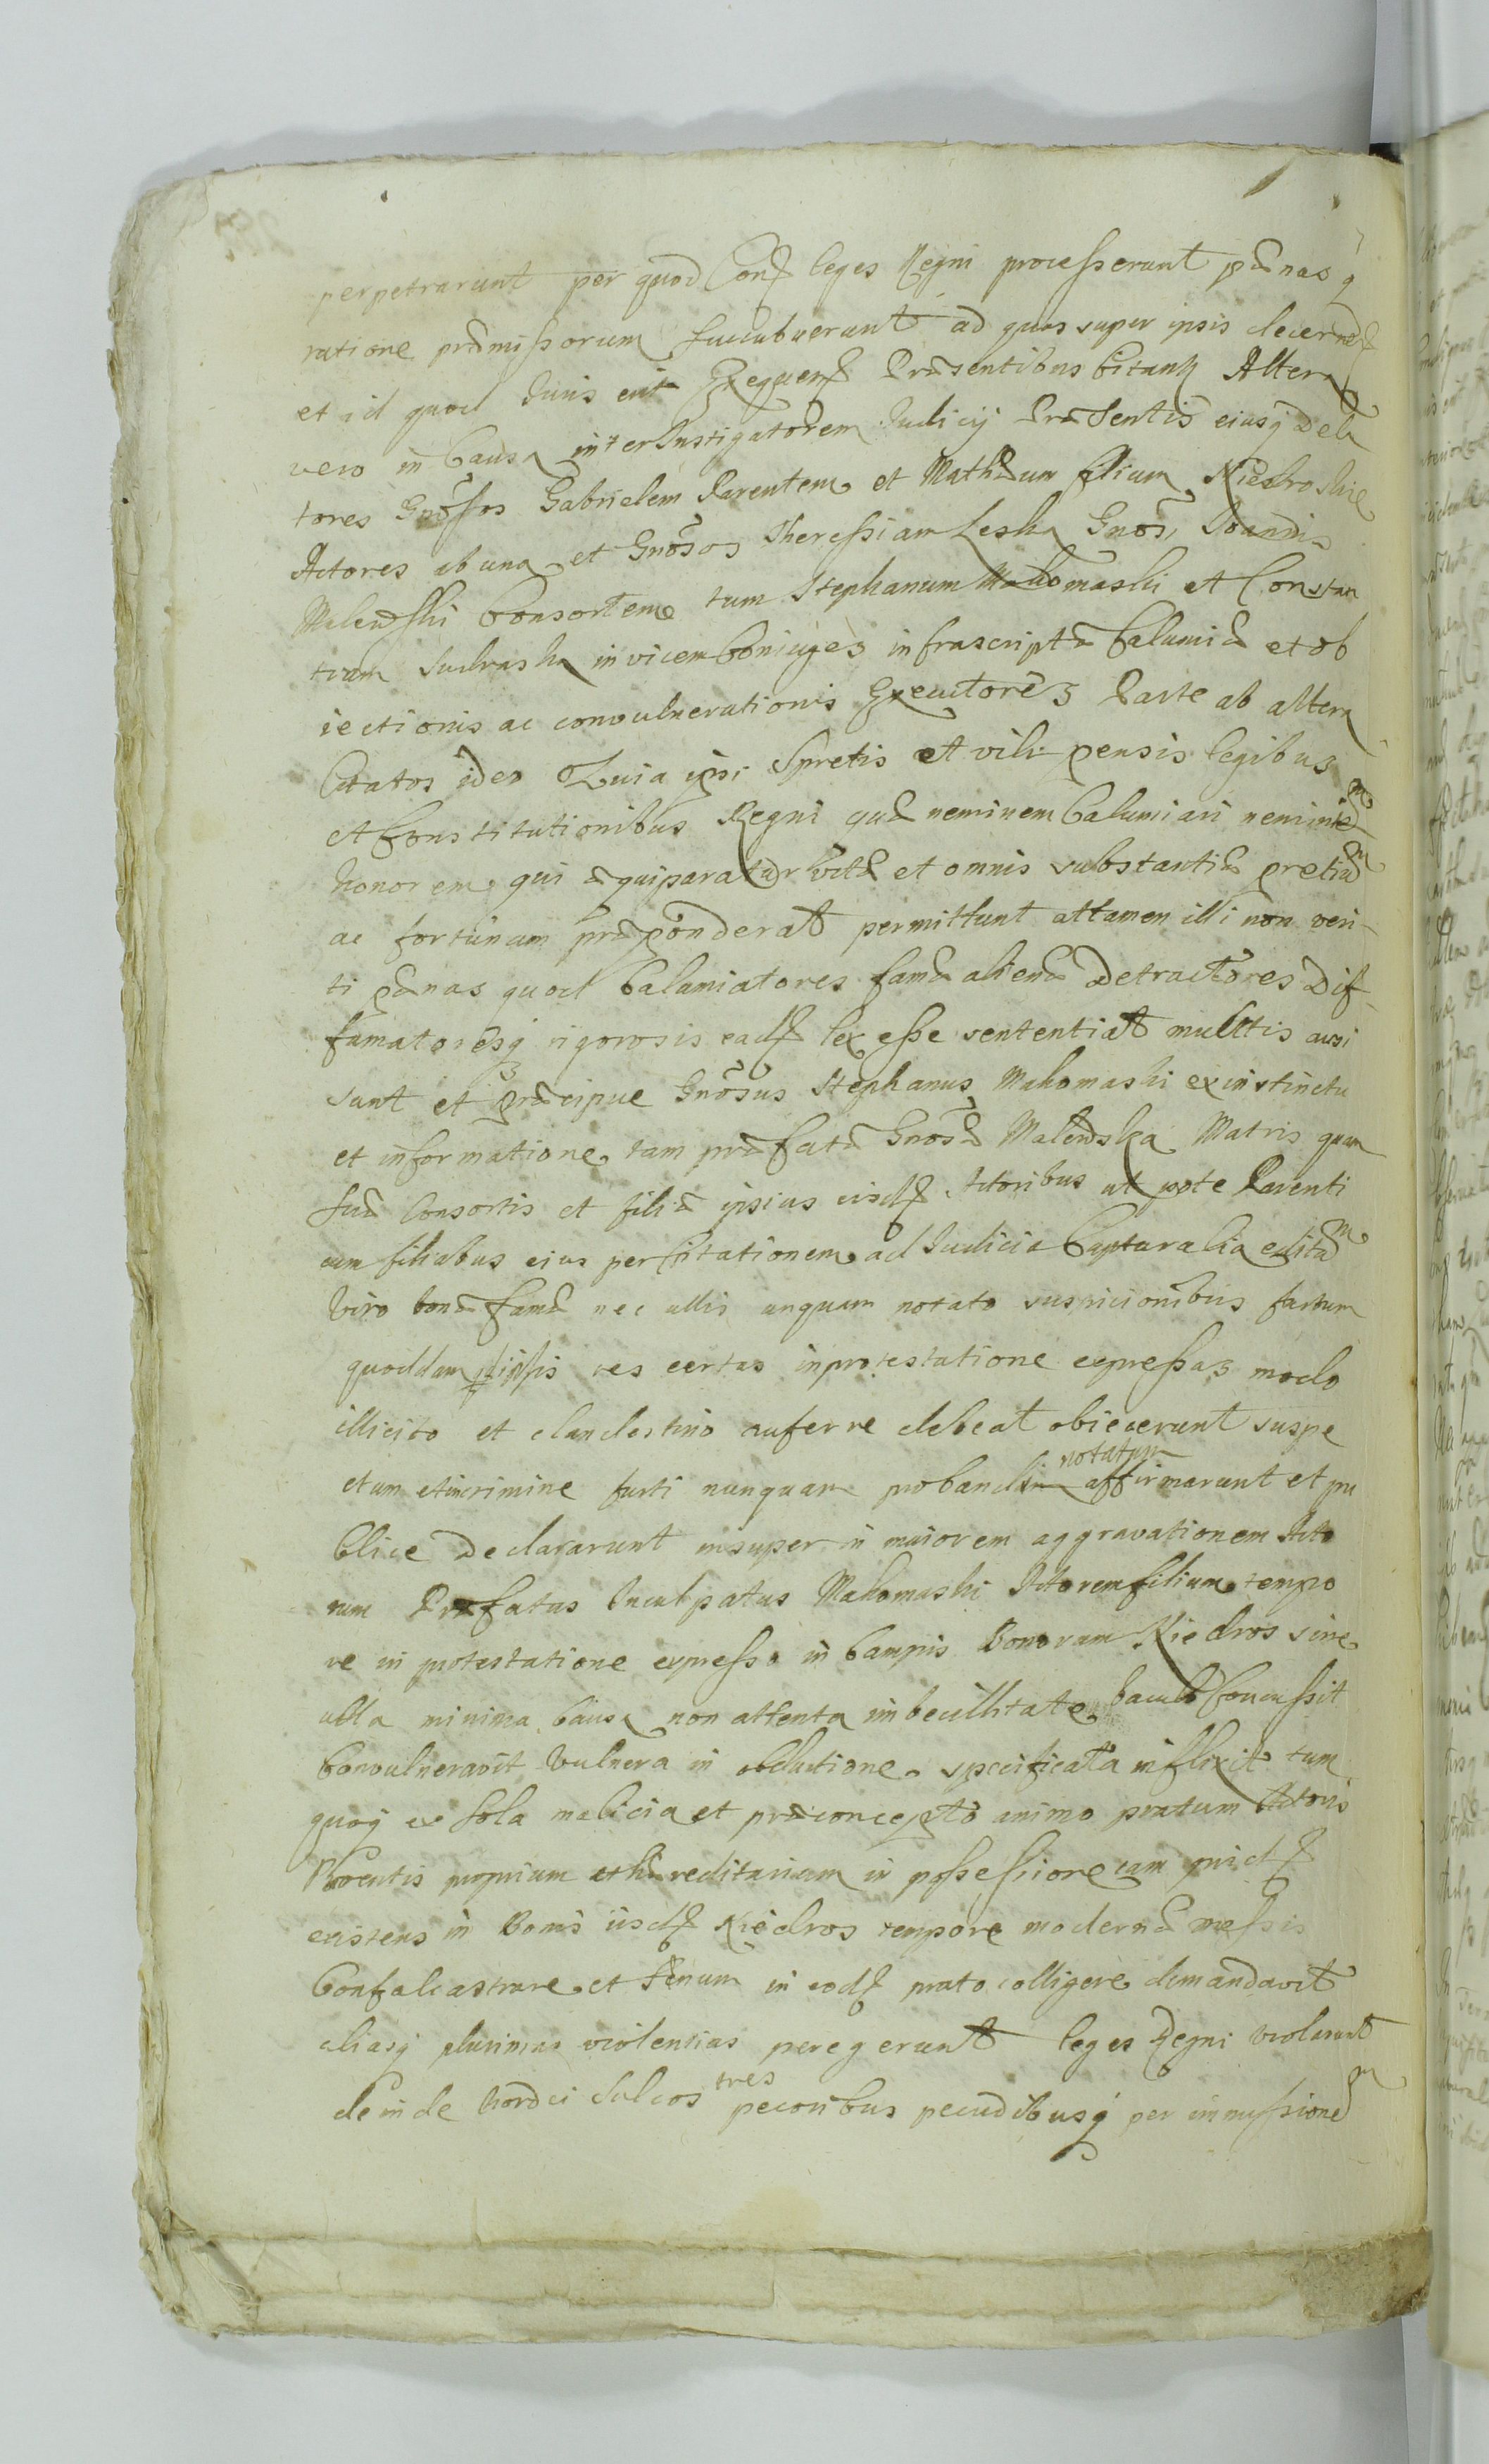 perpetrarunt per quod Conf leges Regni processerunt pænas q
ratione præmissorum succubuerunt ad quas super ipsis decernd
et id quod Iuris erit Exequend Præsentibus Citant Altera
vero in Causa inter Instigatorem Iudicij Præsentis eiusq Dela
tores Gnosos Gabrielem Parentem et Mathæum filium Niedroskie
Actores ab una et Gnosos Theressiam Leska Gnosi Ioannis
Malewski Consortem tum Stephanum Makomaski et Constan
tiam Sudraska invicem Coniuges infrascriptæ Calumiæ et ob
iectionis ac convulnerationis Executores Parte ab altera
Citatos ideo Quia ipsi Spretis et vili pensis legibus
et Constitutionibus Regni quæ neminem Calumiari neminem
honorem qui æquiparatur vitæ et omnis substantiæ pretium
ac fortunam præponderat permittunt attamen illi non veri-
ti pænas quod Calamiatores famæ alienæ Detractores Dif-
famatoresq rigorosis ead lex esse sententiat mulltis ausi
sunt et præcipue Gnosus Stephanus Makomaski ex instinctu
et informatione tam præfatæ Gnosæ Malewska Matris quam
suæ Consortis et filiæ ipsius eisd Actoribus ut pote Parenti
cum filiabus eius per Citationem ad Iudicia Capturalia editam
Viro bonæ famæ nec ullis unquam notato suspicionibus furtum
quoddam ipsis res certas in protestatione expressas modo
illicito et clandestino auferre debeat obiecerunt suspe
ctum et in crimine furti nunquam probandim notatum affirmarunt et pu
blice Declararunt insuper in maiorem aggravationem Acto
rum Præfatus Inculpatus Makomaski Actorem filium tempo
re in protestatione expresso in Campis Bonorum Niedros sine
ulla minima Causa non attenta imbecillitate baculo Concussit
Convulneravit Vulnera in obductione specificata inflixit tum
quoq ex sola malicia et præconcepto animo pratum Actoris
Parentis proprium et hæreditarium in possessione eam prid
existens in Bonis iisd Niedros tempore modernæ messis
Confalcastrare et Fenum in eod prato colligere demandavit
aliasq plurimas violentias peregerunt leges Regni violarunt
deinde hordei Sulcos tres pecoribus pecudibusq per immissionem